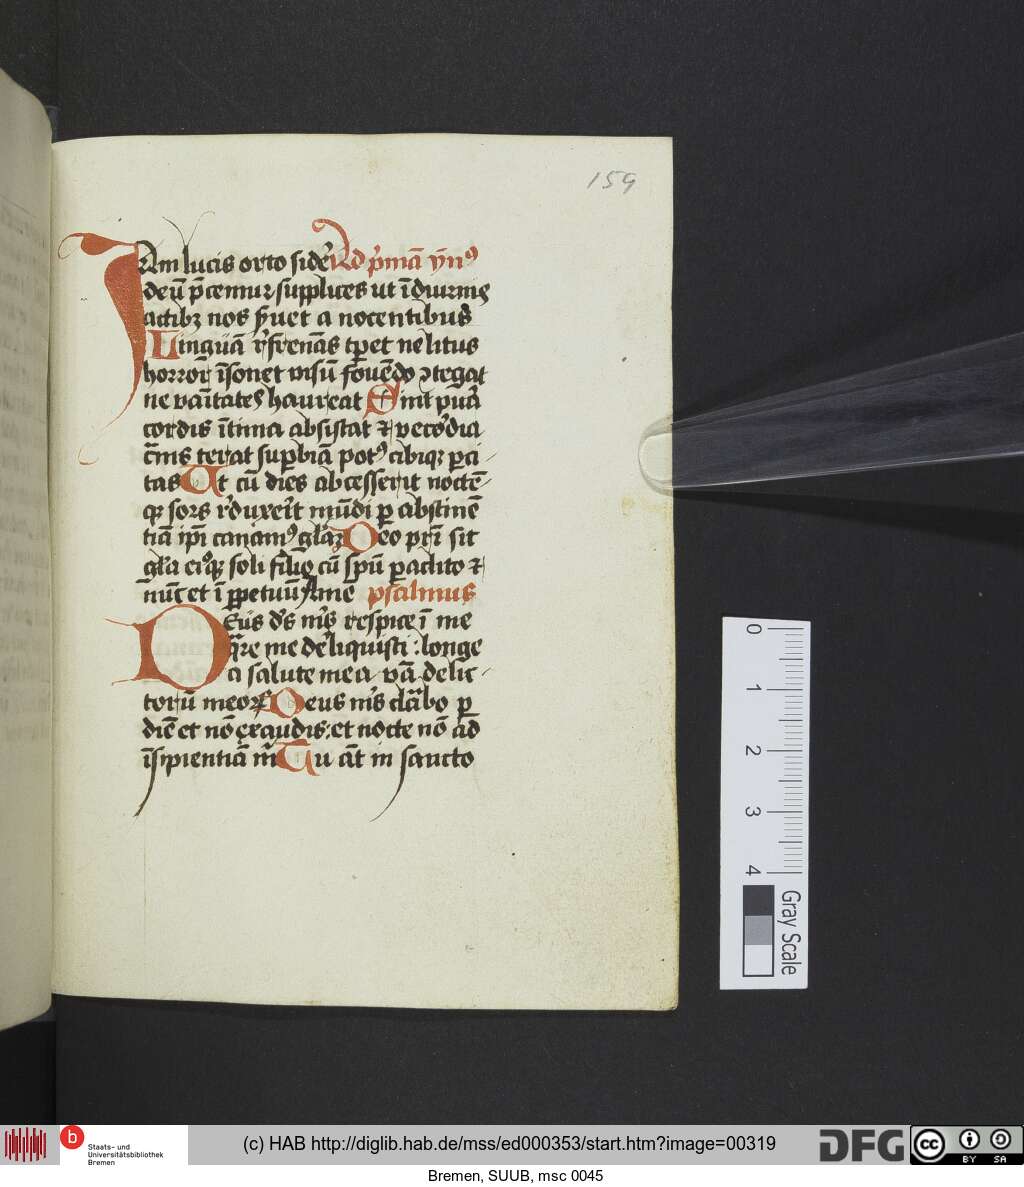 159
IAm lucis orto sider̄ Ad p̄mā ym̄n⁹
deū p̄cemur supplices ut ī diurnis
actibꝫ nos s̄uet a nocentibus
Linguā r̄frenās tꝑet ne litus
horror īsonet visū fovēdo ↄtegat
ne vāitates haureat Sīnt pūā
cordis ītima absistat ⁊ vecordia
cārnis terat suꝑbiā pot⁹ cibiqꝫ ꝑci
tas Ut cū dies abcesserit noctē
qꝫ sors r̄duxeīt mūdi ꝑ abstinē
tiā ip̄i canam⁹ gl̄aꝫ Deo pr̄i sit
gl̄a ei⁹qꝫ soli filio cū sp̄u ꝑaclito ⁊
nūc et ī ꝑpetuū Ame psalmus
DEus d̄s m̄s respice ī me
q̄re me deliquisti : longe
a salute mea vā delic
torū meoꝝ Deus m̄s clābo ꝑ
diē et nō exaudis : et nocte nō ad
īsipientiā m̄ Tu āt in sancto
0 1 2 3 4
Gray Scale
b Staats- und
Universitätsbibliothek
Bremen
(c) HAB http://diglib.hab.de/mss/ed000353/start.htm?image=00319
DFG
cc BY SA
Bremen, SUUB, msc 0045